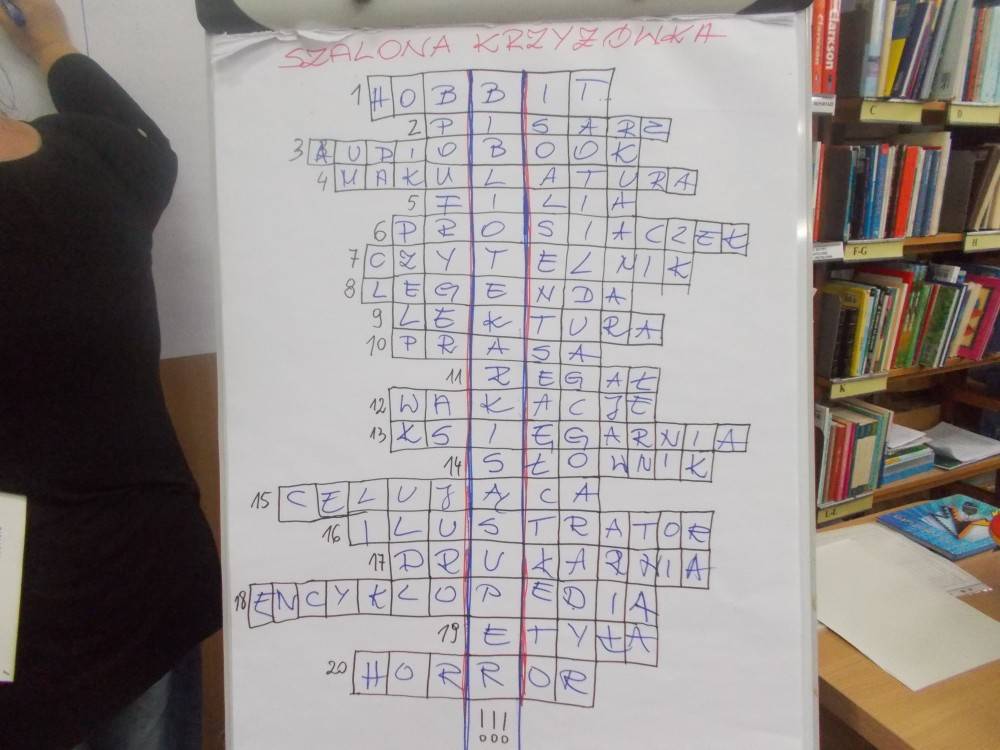 SZALONA KRZYŻÓWKA
1 HOBBIT
2 PISARZ
3 AUDIOBOOK
4 MAKULATURA
5 FILIA
6 PROSIACZEK
7 CZYTELNIK
8 LEGENDA
9 LEKTURA
10 PRASA
11 REGAŁ
12 WAKACJE
13 KSIĘGARNIA
14 SŁOWNIK
15 CELUJĄCA
16 ILUSTRATOR
17 DRUKARNIA
18 ENCYKLOPEDIA
19 ETYŁA
20 HORROR
!!!
clarkson
C
D
F-G
H
K